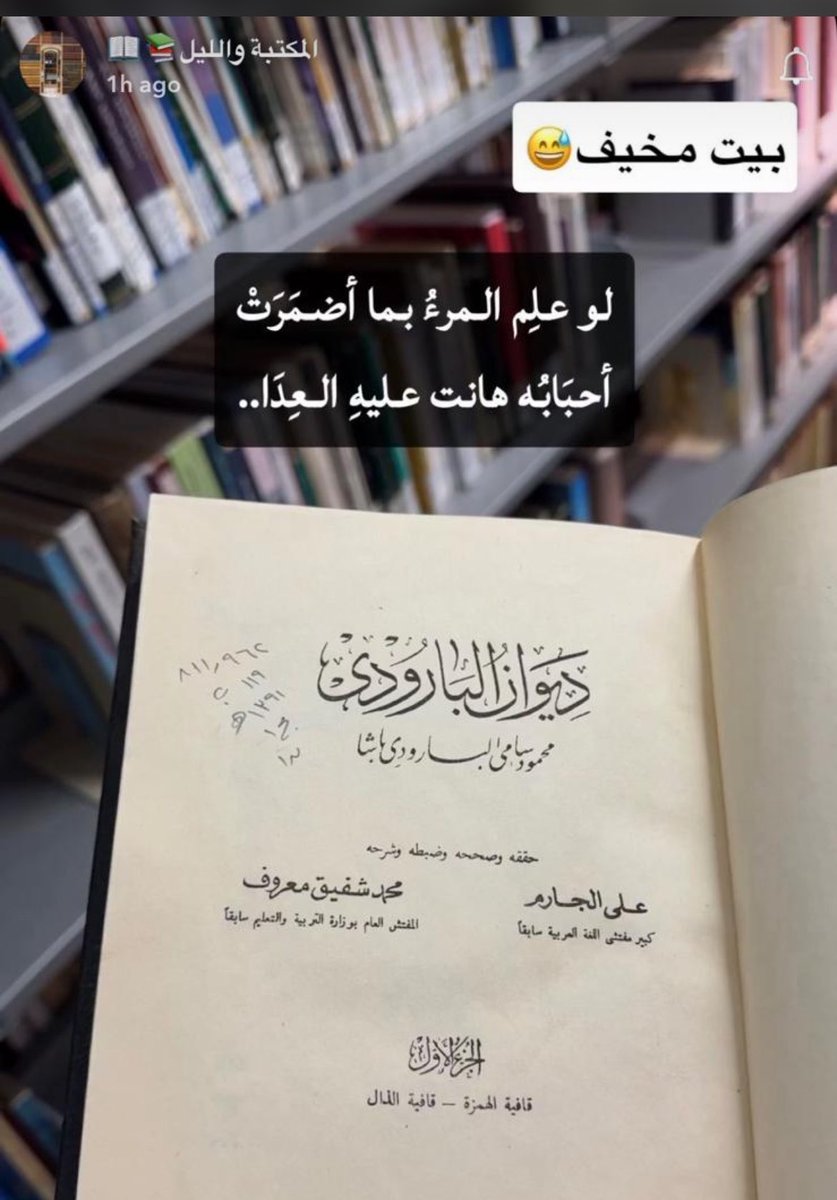 المكتبة والليل📚📖
1h ago
بيت مخيف😅
لو علِم المرءُ بما أضمَرَتْ
أحبَابُه هانت عليهِ العِدَا..
ديوان البارودي
محمود سامى البارودى باشا
٨١١,٩٦٢
ب ١١٩
١٣٩١ه
ج١
حققه وصححه وضبطه وشرحه
على الجارم
كبير مفتشى اللغة العربية سابقاً
محمد شفيق معروف
المفتش العام بوزارة التربية والتعليم سابقاً
الجزء الأول
قافية الهمزة – قافية الدال